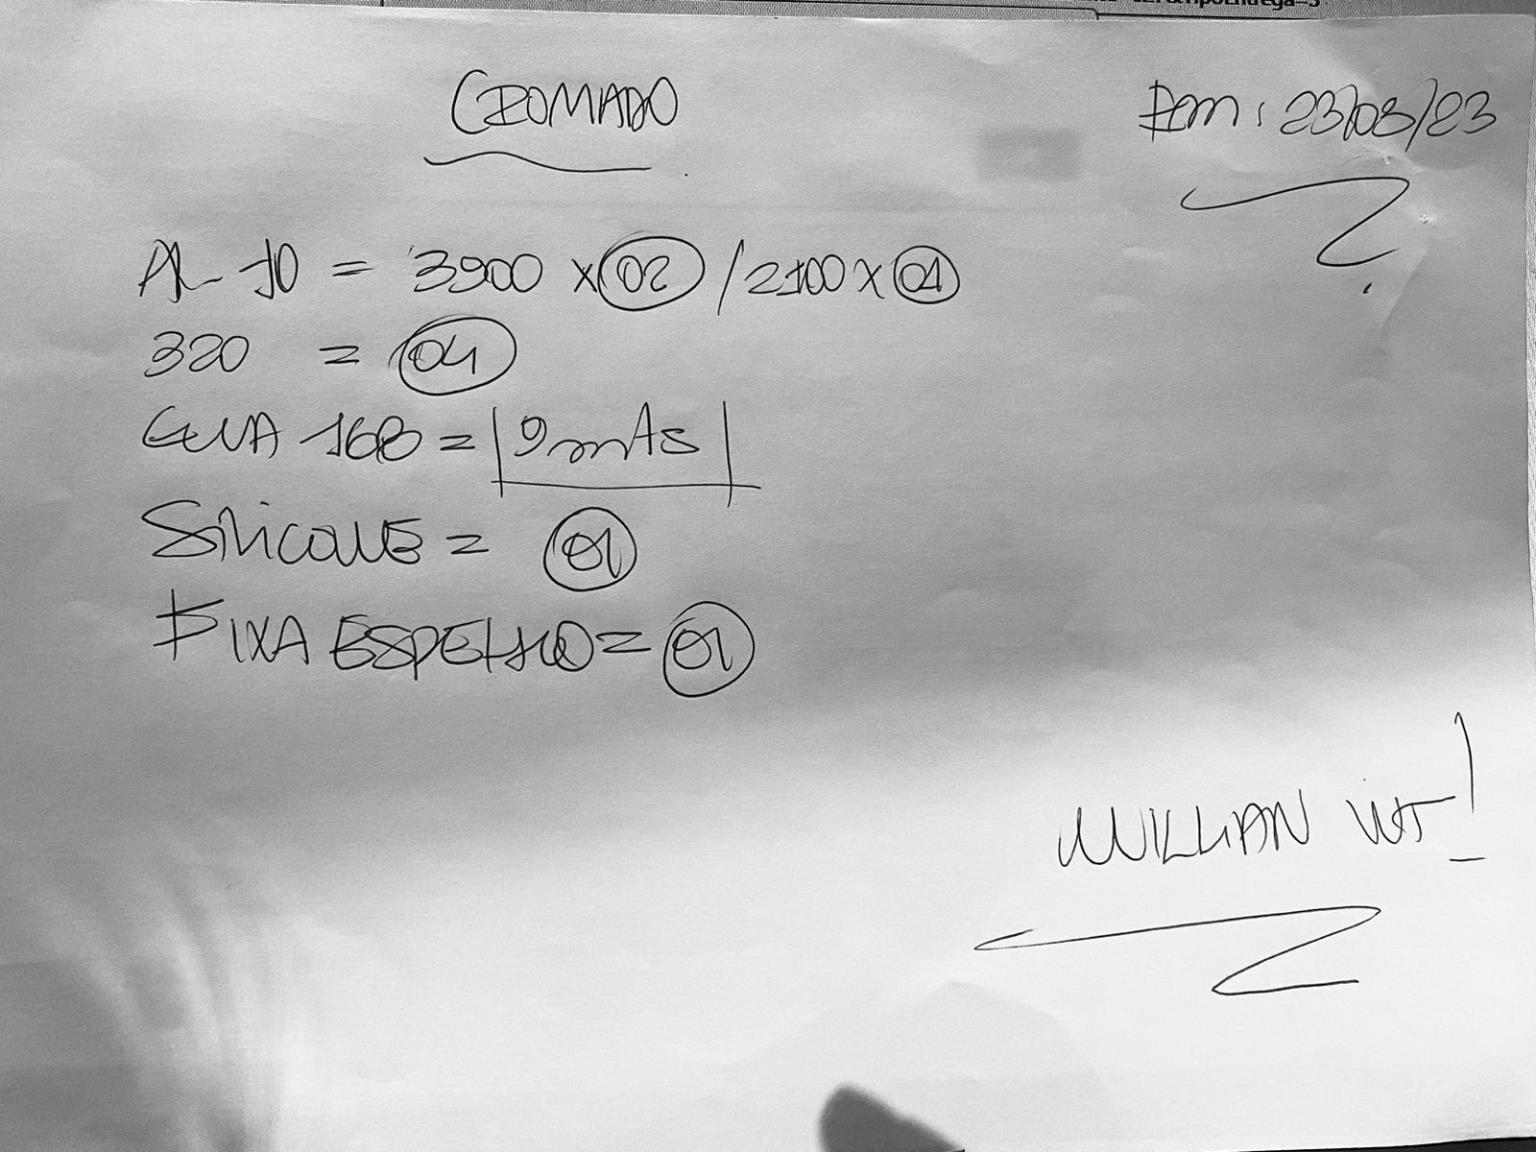 CROMADO
Em: 23/03/23
AL-10 = 3900 x 02 / 2100 x 01
320 = 04
GUIA 168 = 9mts
SILICONE = 01
FIXA ESPELHO = 01
WILLIAN